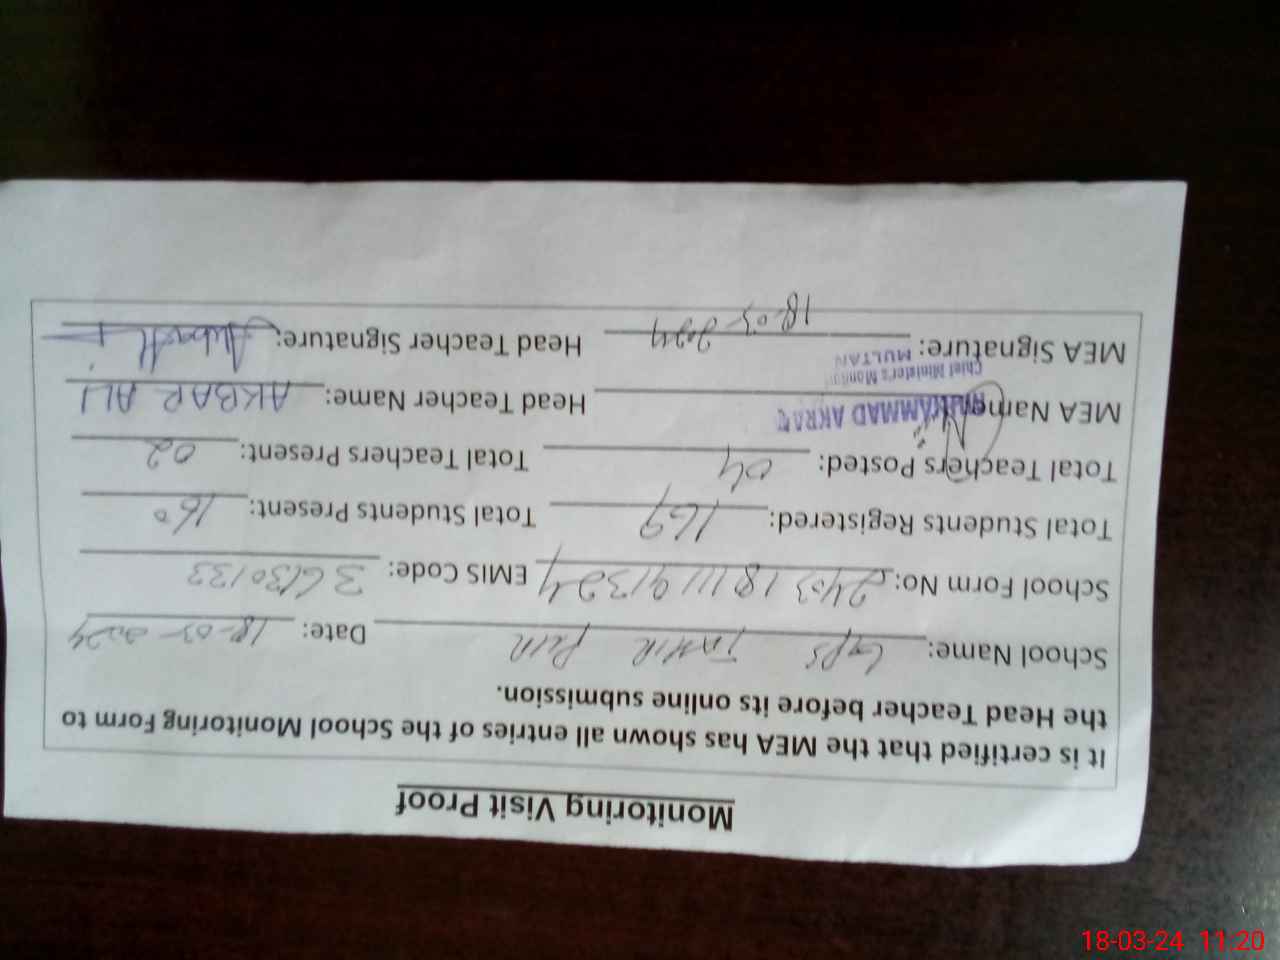 Monitoring Visit Proof
It is certified that the MEA has shown all entries of the School Monitoring Form to
the Head Teacher before its online submission.
School Name: GPS TAHIR PUR Date: 18-03-2024
School Form No: 24031811191324 EMIS Code: 36130133
Total Students Registered: 169 Total Students Present: 160
Total Teachers Posted: 04 Total Teachers Present: 02
MEA Name MUHAMMAD AKRAM Head Teacher Name: AKBAR ALI
Chief Minister's Monitoring
MULTAN
MEA Signature: Head Teacher Signature:
18-03-2024
18-03-24 11:20